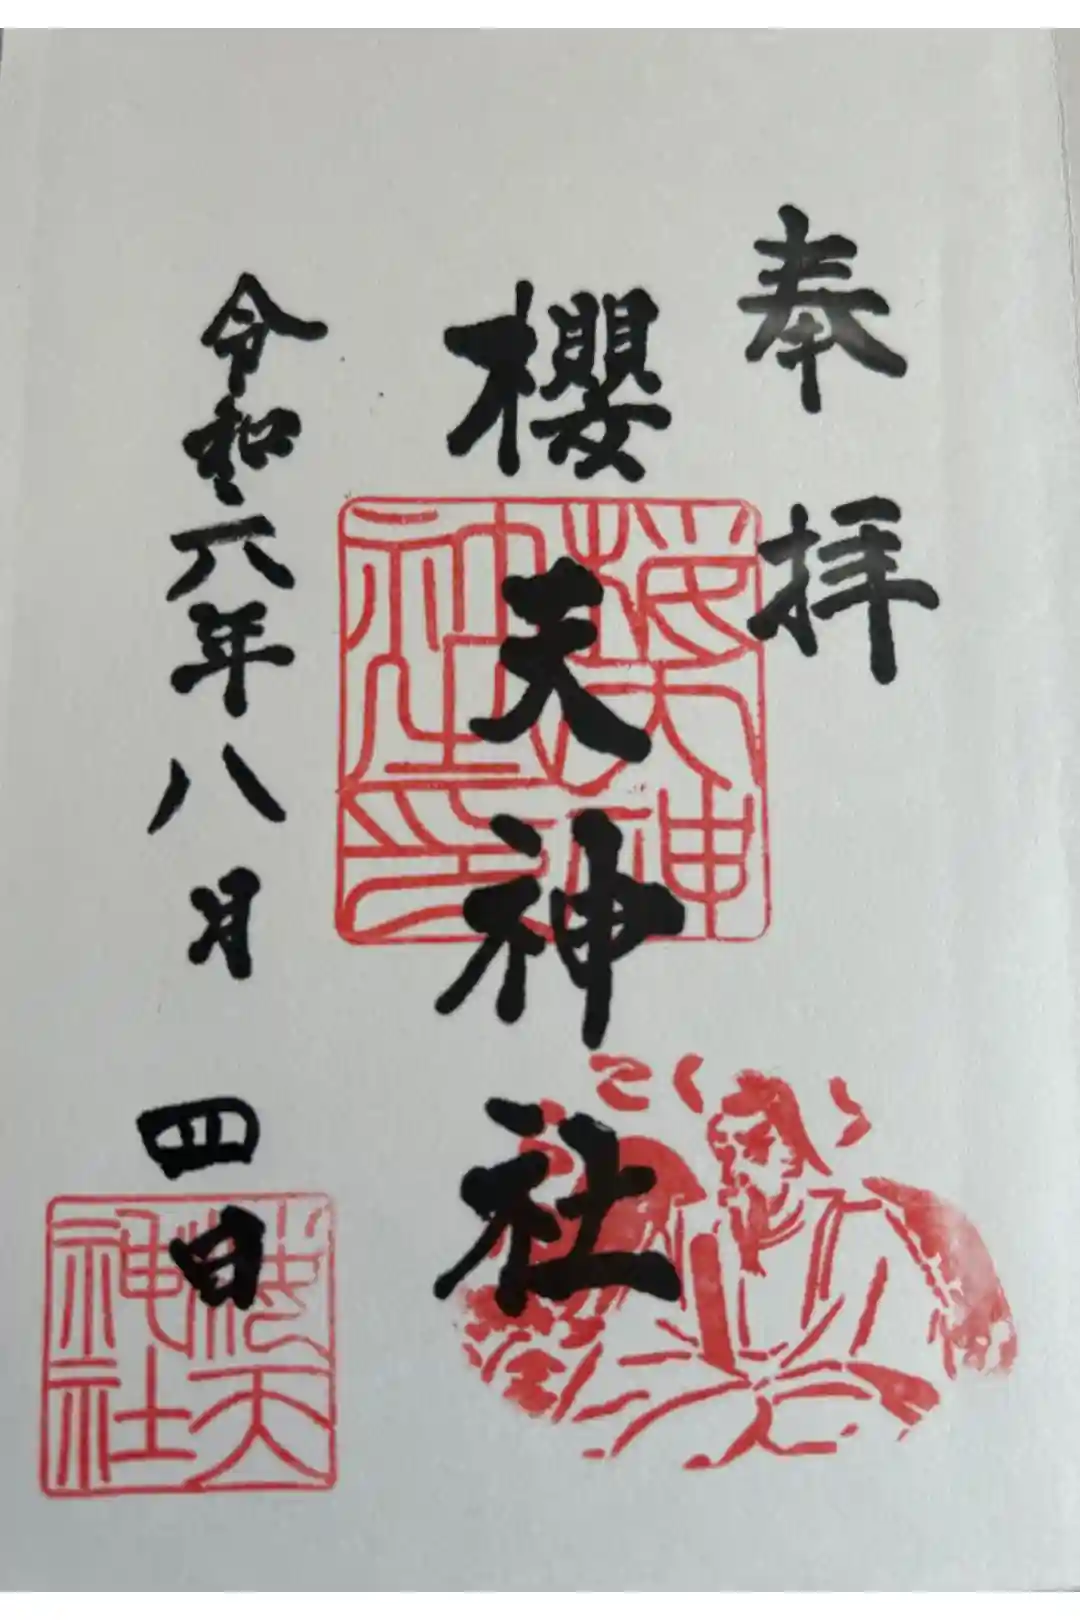 奉拝
櫻天神社
桜天神社印
令和六年八月四日
桜天神社